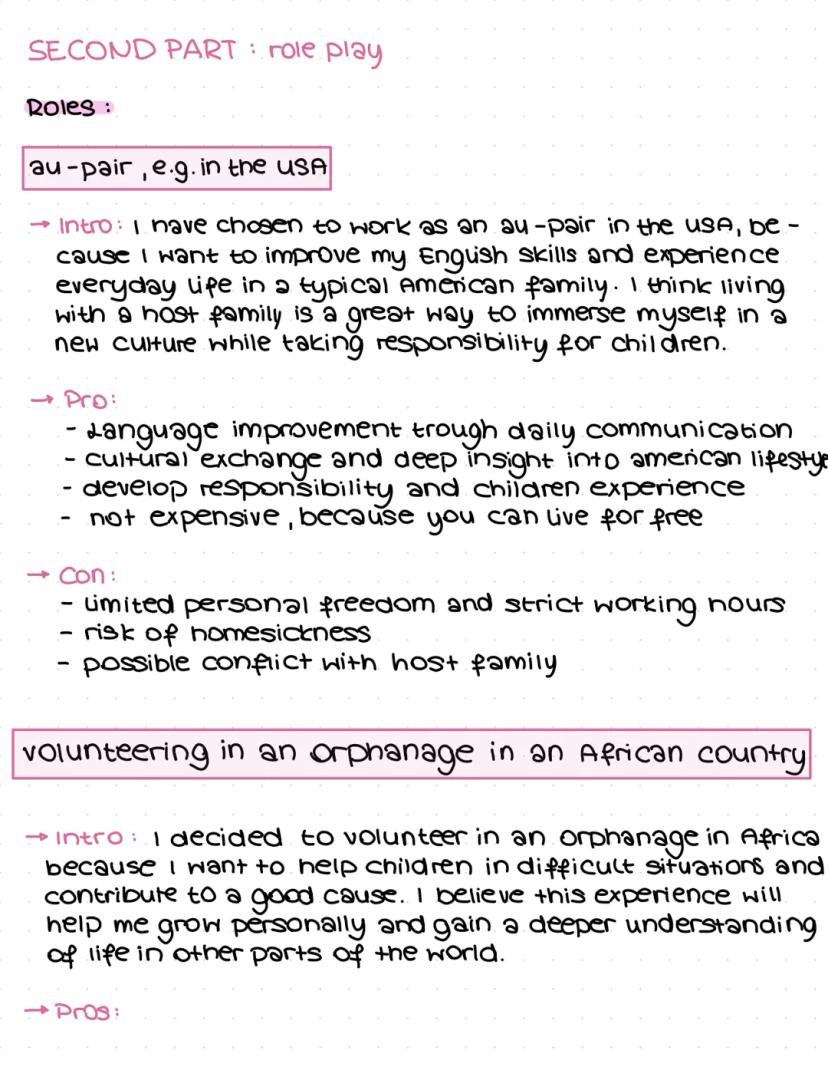 SECOND PART : role play
Roles :
au-pair , e.g. in the USA
→ Intro: I have chosen to work as an au-pair in the USA, be-
cause I want to improve my English skills and experience
everyday life in a typical American family. I think living
with a host family is a great way to immerse myself in a
new culture while taking responsibility for children.
→ Pro:
- Language improvement trough daily communication
- cultural exchange and deep insight into american lifestye
- develop responsibility and children experience
- not expensive, because you can live for free
→ Con:
- limited personal freedom and strict working hours
- risk of homesickness
- possible conflict with host family
volunteering in an orphanage in an African country
→ Intro: I decided to volunteer in an orphanage in Africa
because I want to help children in difficult situations and
contribute to a good cause. I believe this experience will
help me grow personally and gain a deeper understanding
of life in other parts of the world.
→ Pros: